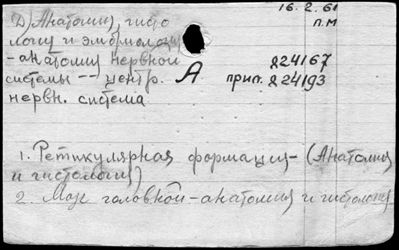 16.2.61
п.м
Д) Анатомия, гисто
логия и эмбриология
-анатомия нервной
системы -- центр.
нервн. система
А
д24167
прип. д24193
1. Ретикулярная формация - (Анатомия
и гистология)
2. Мозг головной - анатомия и гистология